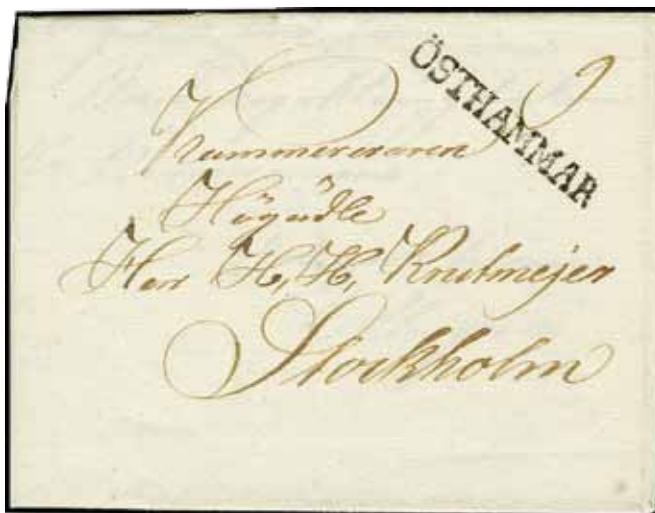 ÖSTHAMMAR
Kammereraren
Högädle
Herr H, H, Knutmejer
Stockholm